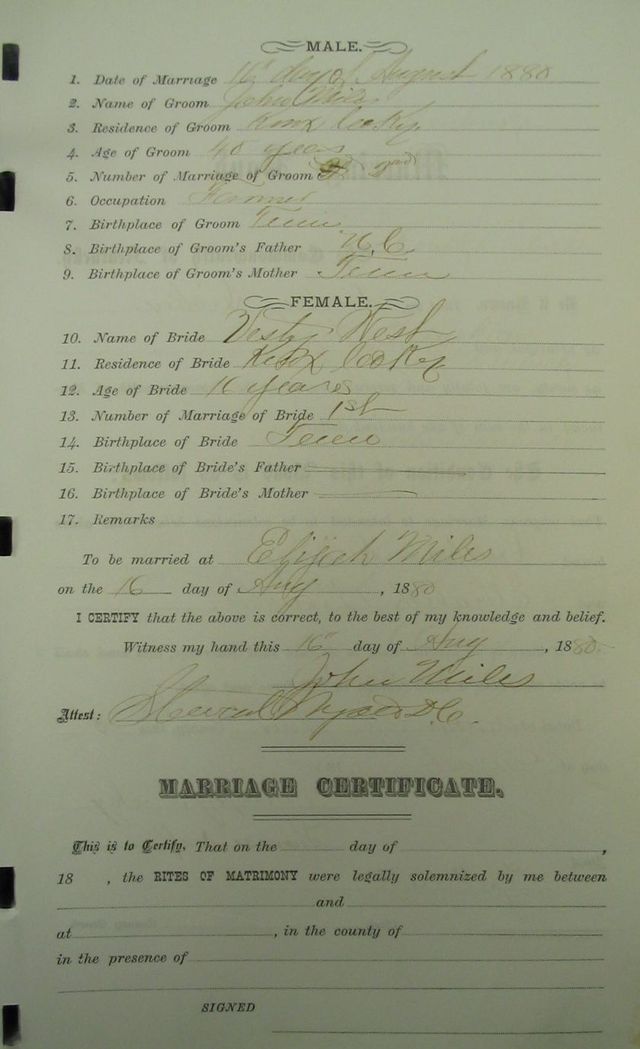 MALE.
1. Date of Marriage 16" day of August 1880
2. Name of Groom John Miles
3. Residence of Groom Knox Co Ky
4. Age of Groom 40 years
5. Number of Marriage of Groom 2nd
6. Occupation Farmer
7. Birthplace of Groom Tenn
8. Birthplace of Groom's Father N.C.
9. Birthplace of Groom's Mother Tenn
FEMALE.
10. Name of Bride Vesty West
11. Residence of Bride Knox Co Ky
12. Age of Bride 16 years
13. Number of Marriage of Bride 1st
14. Birthplace of Bride Tenn
15. Birthplace of Bride's Father
16. Birthplace of Bride's Mother
17. Remarks
To be married at Elijah Miles
on the 16 day of Aug, 1880
I CERTIFY that the above is correct, to the best of my knowledge and belief.
Witness my hand this 16" day of Aug, 1880
John Miles
Attest: D.C.
MARRIAGE CERTIFICATE.
This is to Certify, That on the day of ,
18 , the RITES OF MATRIMONY were legally solemnized by me between
and
at , in the county of
in the presence of
SIGNED